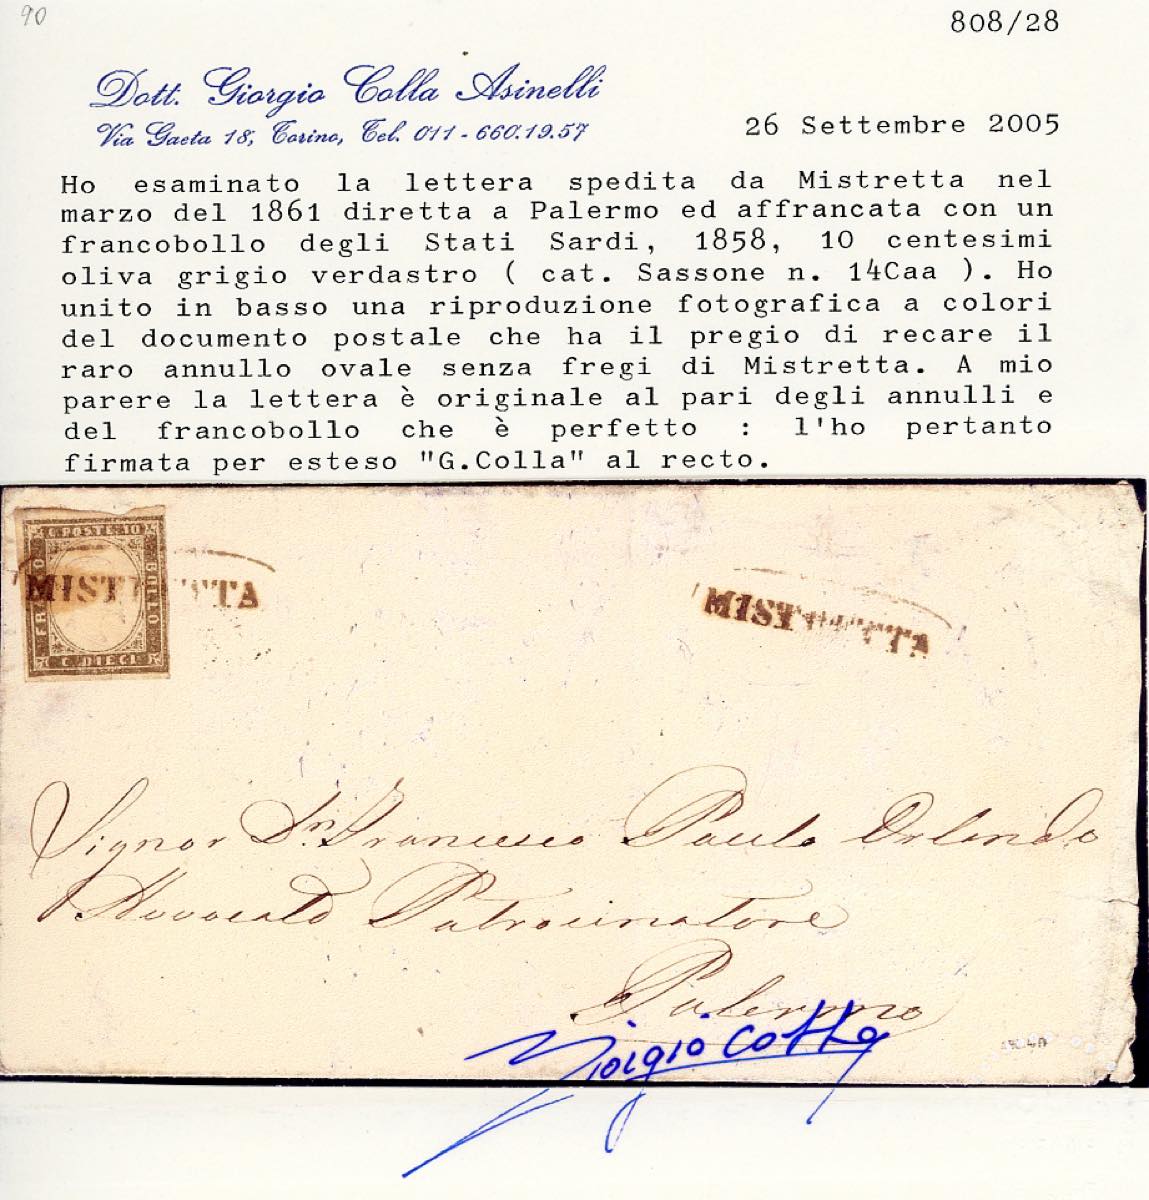 90
808/28
Dott. Giorgio Colla Asinelli
Via Gaeta 18, Torino, Tel. 011-660.19.57
26 Settembre 2005
Ho esaminato la lettera spedita da Mistretta nel
marzo del 1861 diretta a Palermo ed affrancata con un
francobollo degli Stati Sardi, 1858, 10 centesimi
oliva grigio verdastro ( cat. Sassone n. 14Caa ). Ho
unito in basso una riproduzione fotografica a colori
del documento postale che ha il pregio di recare il
raro annullo ovale senza fregi di Mistretta. A mio
parere la lettera è originale al pari degli annulli e
del francobollo che è perfetto : l'ho pertanto
firmata per esteso "G.Colla" al recto.
C. POSTE 10
FRANCO
BOLLO
C. DIECI
MISTRETTA
MISTRETTA
Signor Dn. Francesco Paulo Orlando
Avvocato Patrocinatore
Palermo
Giorgio Colla